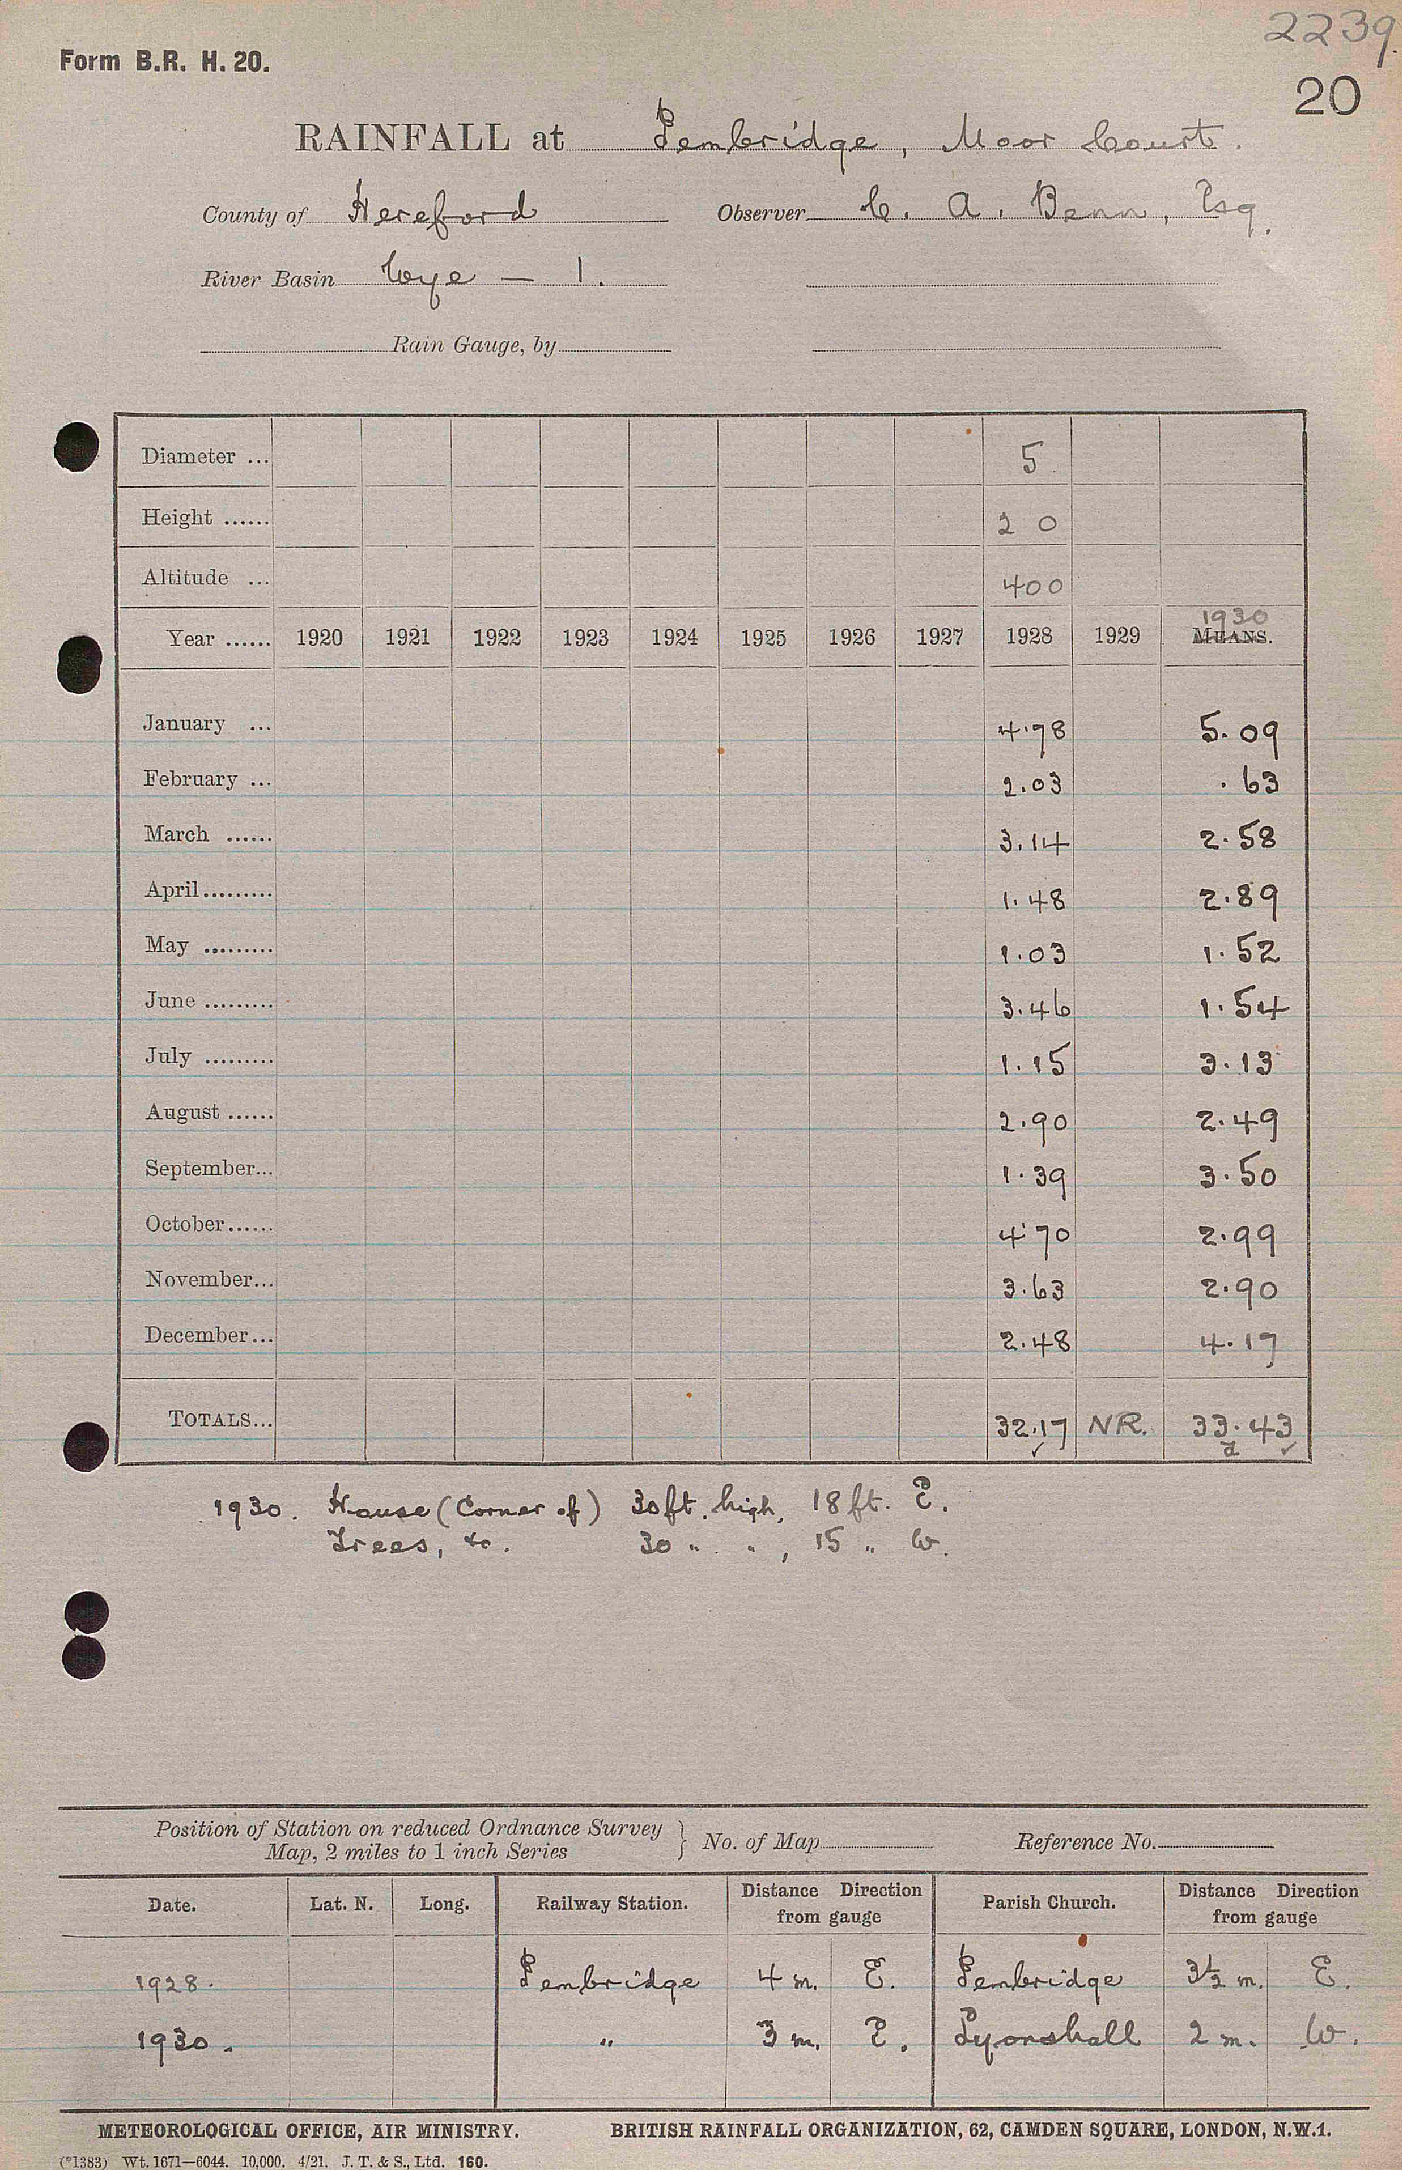 2239.
Form B.R. H. 20.
20
RAINFALL at Pembridge, Moor Court.
County of Hereford Observer C. A. Benn, Esq.
River Basin Wye — 1.
Rain Gauge, by
Diameter ... 5
Height ...... 2 0
Altitude ... 400
Year ...... 1920 1921 1922 1923 1924 1925 1926 1927 1928 1929 1930 MEANS.
January ... 4.78 5.09
February ... 2.03 .63
March ...... 3.14 2.58
April ......... 1.48 2.89
May ......... 1.03 1.52
June ......... 3.46 1.54
July ......... 1.15 3.13
August ...... 2.90 2.49
September... 1.39 3.50
October...... 4.70 2.99
November... 3.63 2.90
December... 2.48 4.17
TOTALS... 32.17 NR. 33.43
✓ a ✓
1930. House (Corner of) 30ft. high, 18ft. E.
Trees, &c. 30 " " , 15 " W.
Position of Station on reduced Ordnance Survey
Map, 2 miles to 1 inch Series } No. of Map Reference No.
Date. Lat. N. Long. Railway Station. Distance Direction from gauge Parish Church. Distance Direction from gauge
1928. Pembridge 4 m. E. Pembridge 3½ m. E.
1930. " 3 m. E. Lyonshall 2 m. W.
METEOROLOGICAL OFFICE, AIR MINISTRY. BRITISH RAINFALL ORGANIZATION, 62, CAMDEN SQUARE, LONDON, N.W.1.
(*1383) Wt. 1671—6044. 10,000. 4/21. J. T. & S., Ltd. 160.